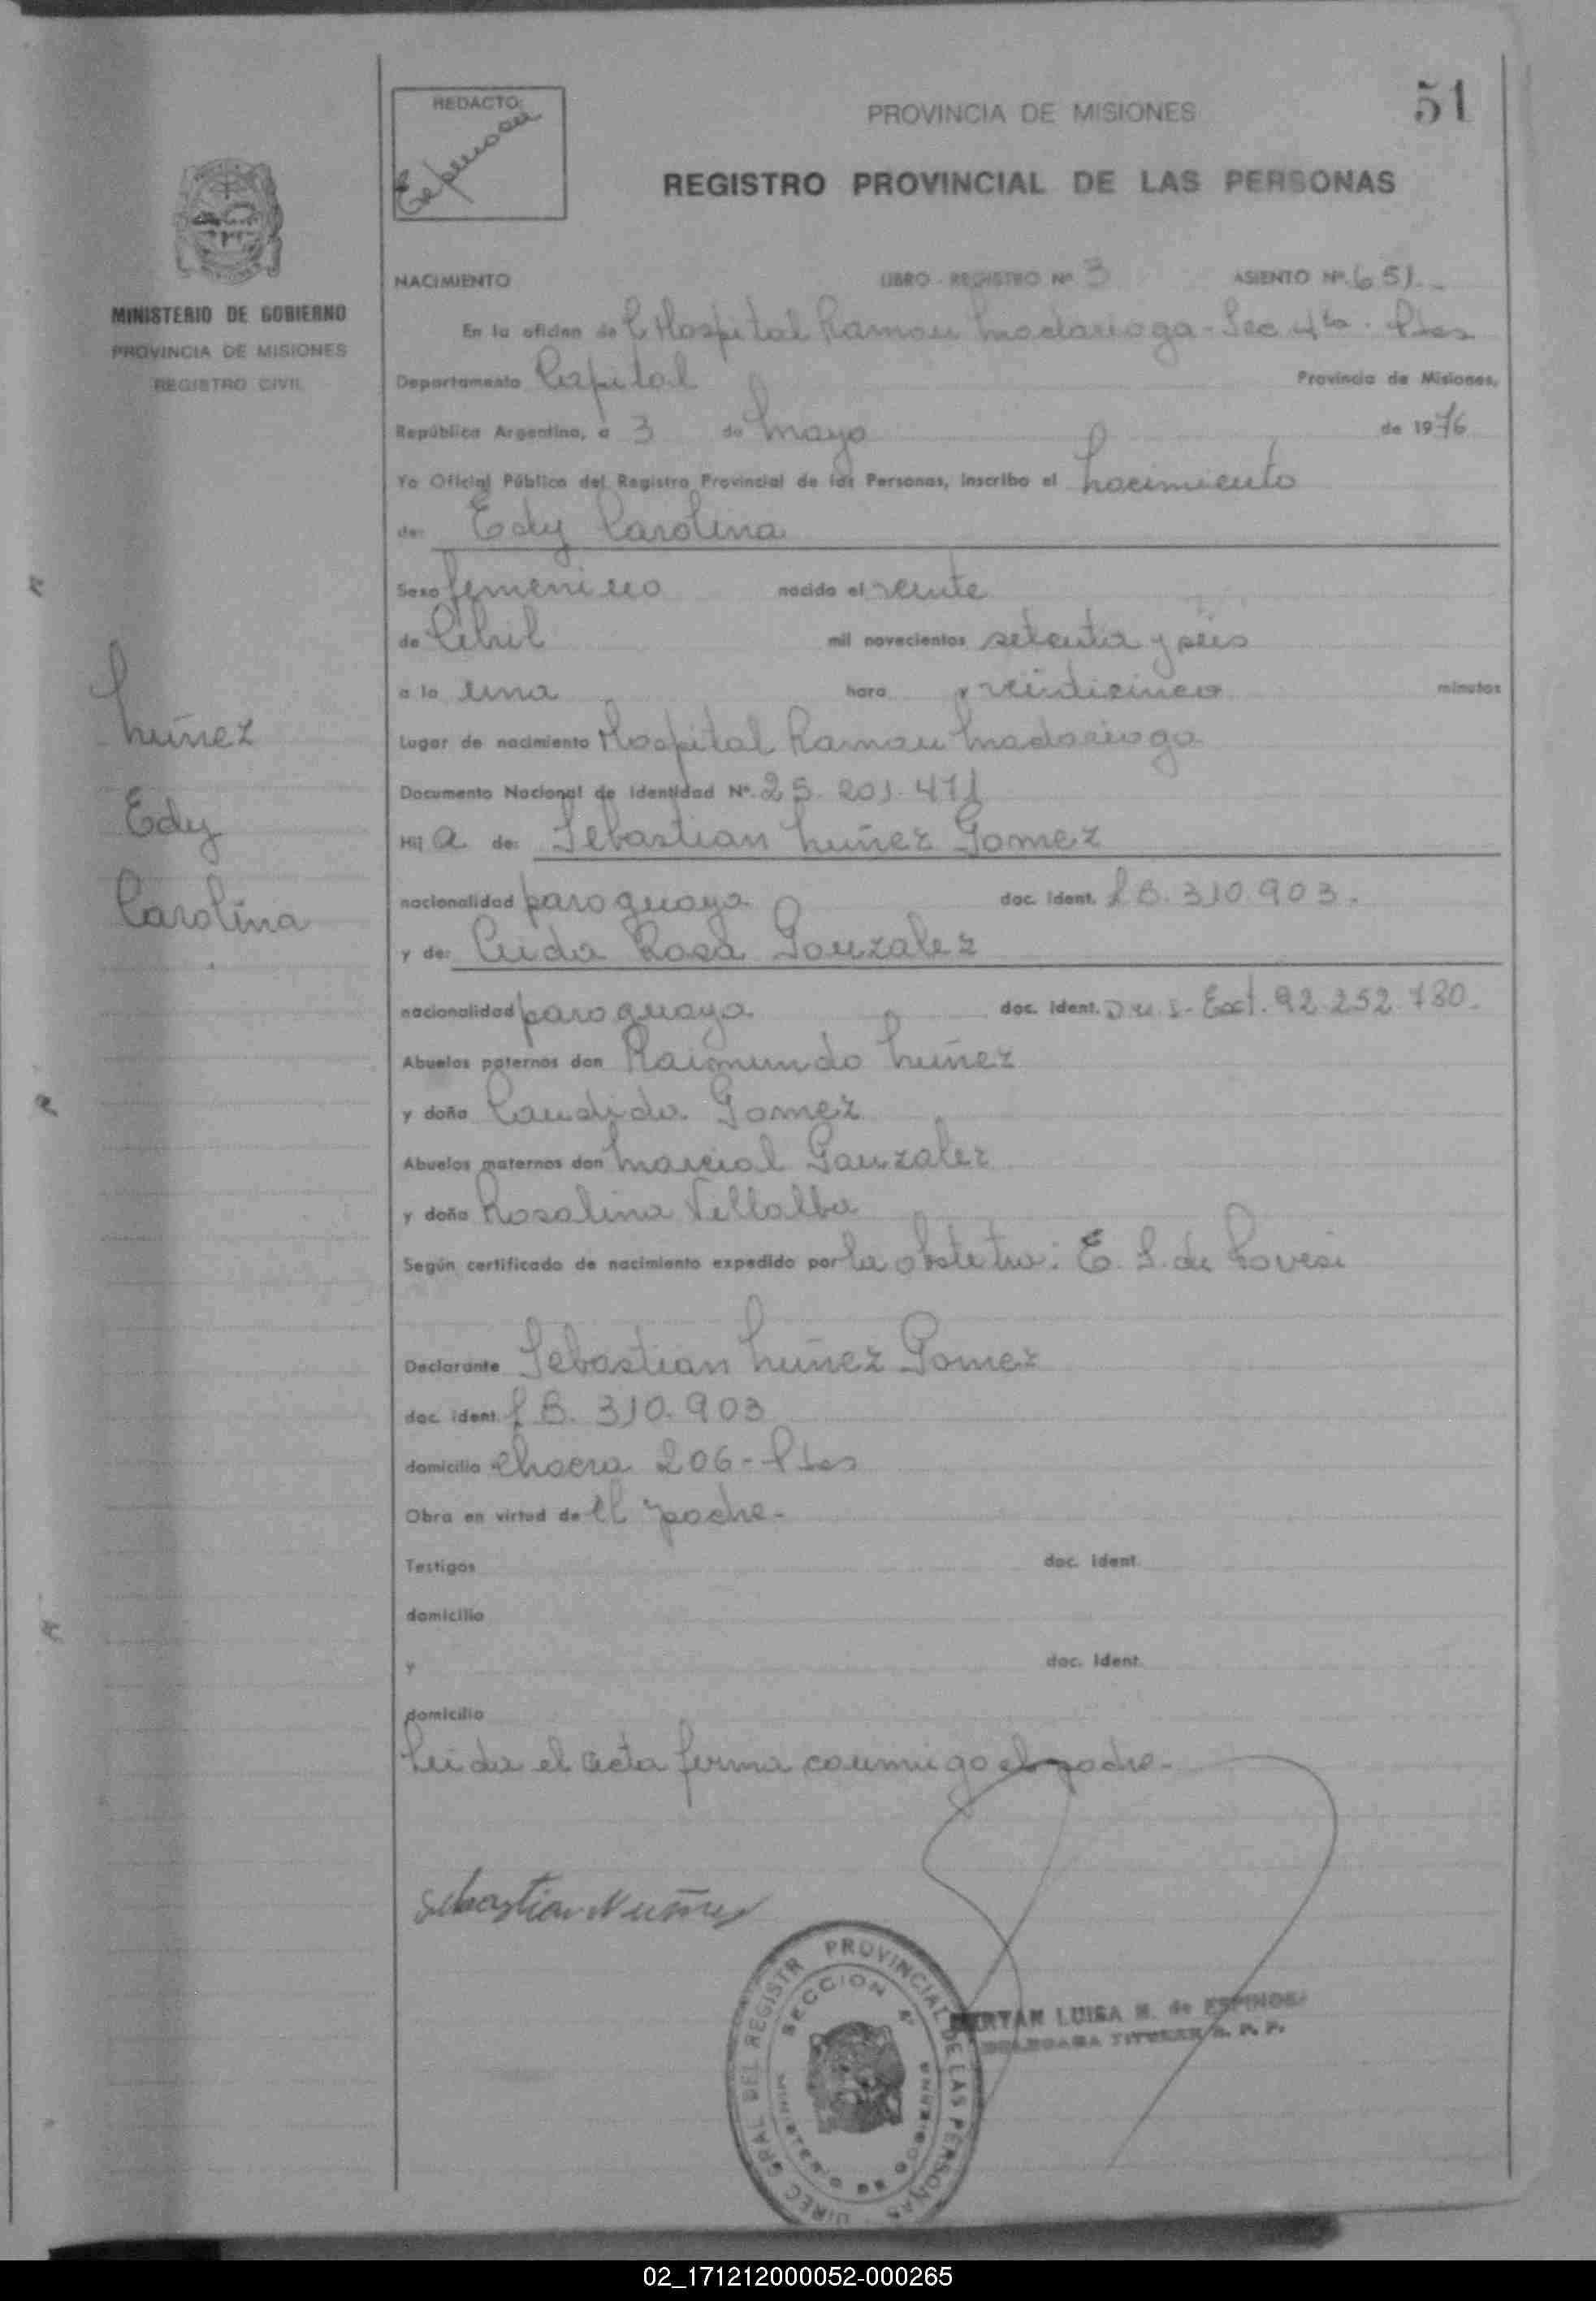 51
REDACTO:
PROVINCIA DE MISIONES
REGISTRO PROVINCIAL DE LAS PERSONAS
MINISTERIO DE GOBIERNO
PROVINCIA DE MISIONES
REGISTRO CIVIL
NACIMIENTO LIBRO - REGISTRO Nº 3 ASIENTO Nº. 651
En la oficina de Hospital Ramon Madariaga - Sec 4ta. Pdas
Departamento Capital Provincia de Misiones,
República Argentina, a 3 de Mayo de 1976
Yo Oficial Público del Registro Provincial de las Personas, inscribo el Nacimiento
de: Edy Carolina
Sexo femenino nacido el veinte
de Abril mil novecientos setenta y seis
a la una hora y veinticinco minutos
Lugar de nacimiento Hospital Ramon Madariaga
Documento Nacional de Identidad Nº. 25.201.471
Hij a de: Sebastian Nuñez Gomez
nacionalidad paraguaya doc. ident. 310.903.-
y de: Rosa Gonzalez
nacionalidad paraguaya doc. ident. Ext. 92.252.780.
Abuelos paternos don Raimundo Nuñez
y doña Candida Gomez
Abuelos maternos don Marcial Gonzalez
y doña Rosalina Villalba
Según certificado de nacimiento expedido por la obstetra: E. de
Declarante Sebastian Nuñez Gomez
doc. ident. 310.903
domicilio chacra 206 - Pdas
Obra en virtud de el padre.-
Testigos doc. ident.
domicilio
y doc. ident.
domicilio
Leida el acta firma conmigo el padre.-
Nuñez
Edy
Carolina
Sebastian Nuñez
DIREC GRAL DEL REGISTR PROVINCIAL DE LAS PERSONAS
SECCION
MINISTERIO DE GOBIERNO
LUISA de ESPINOSA
DELEGADA TITULAR R. P. P.
02_171212000052-000265